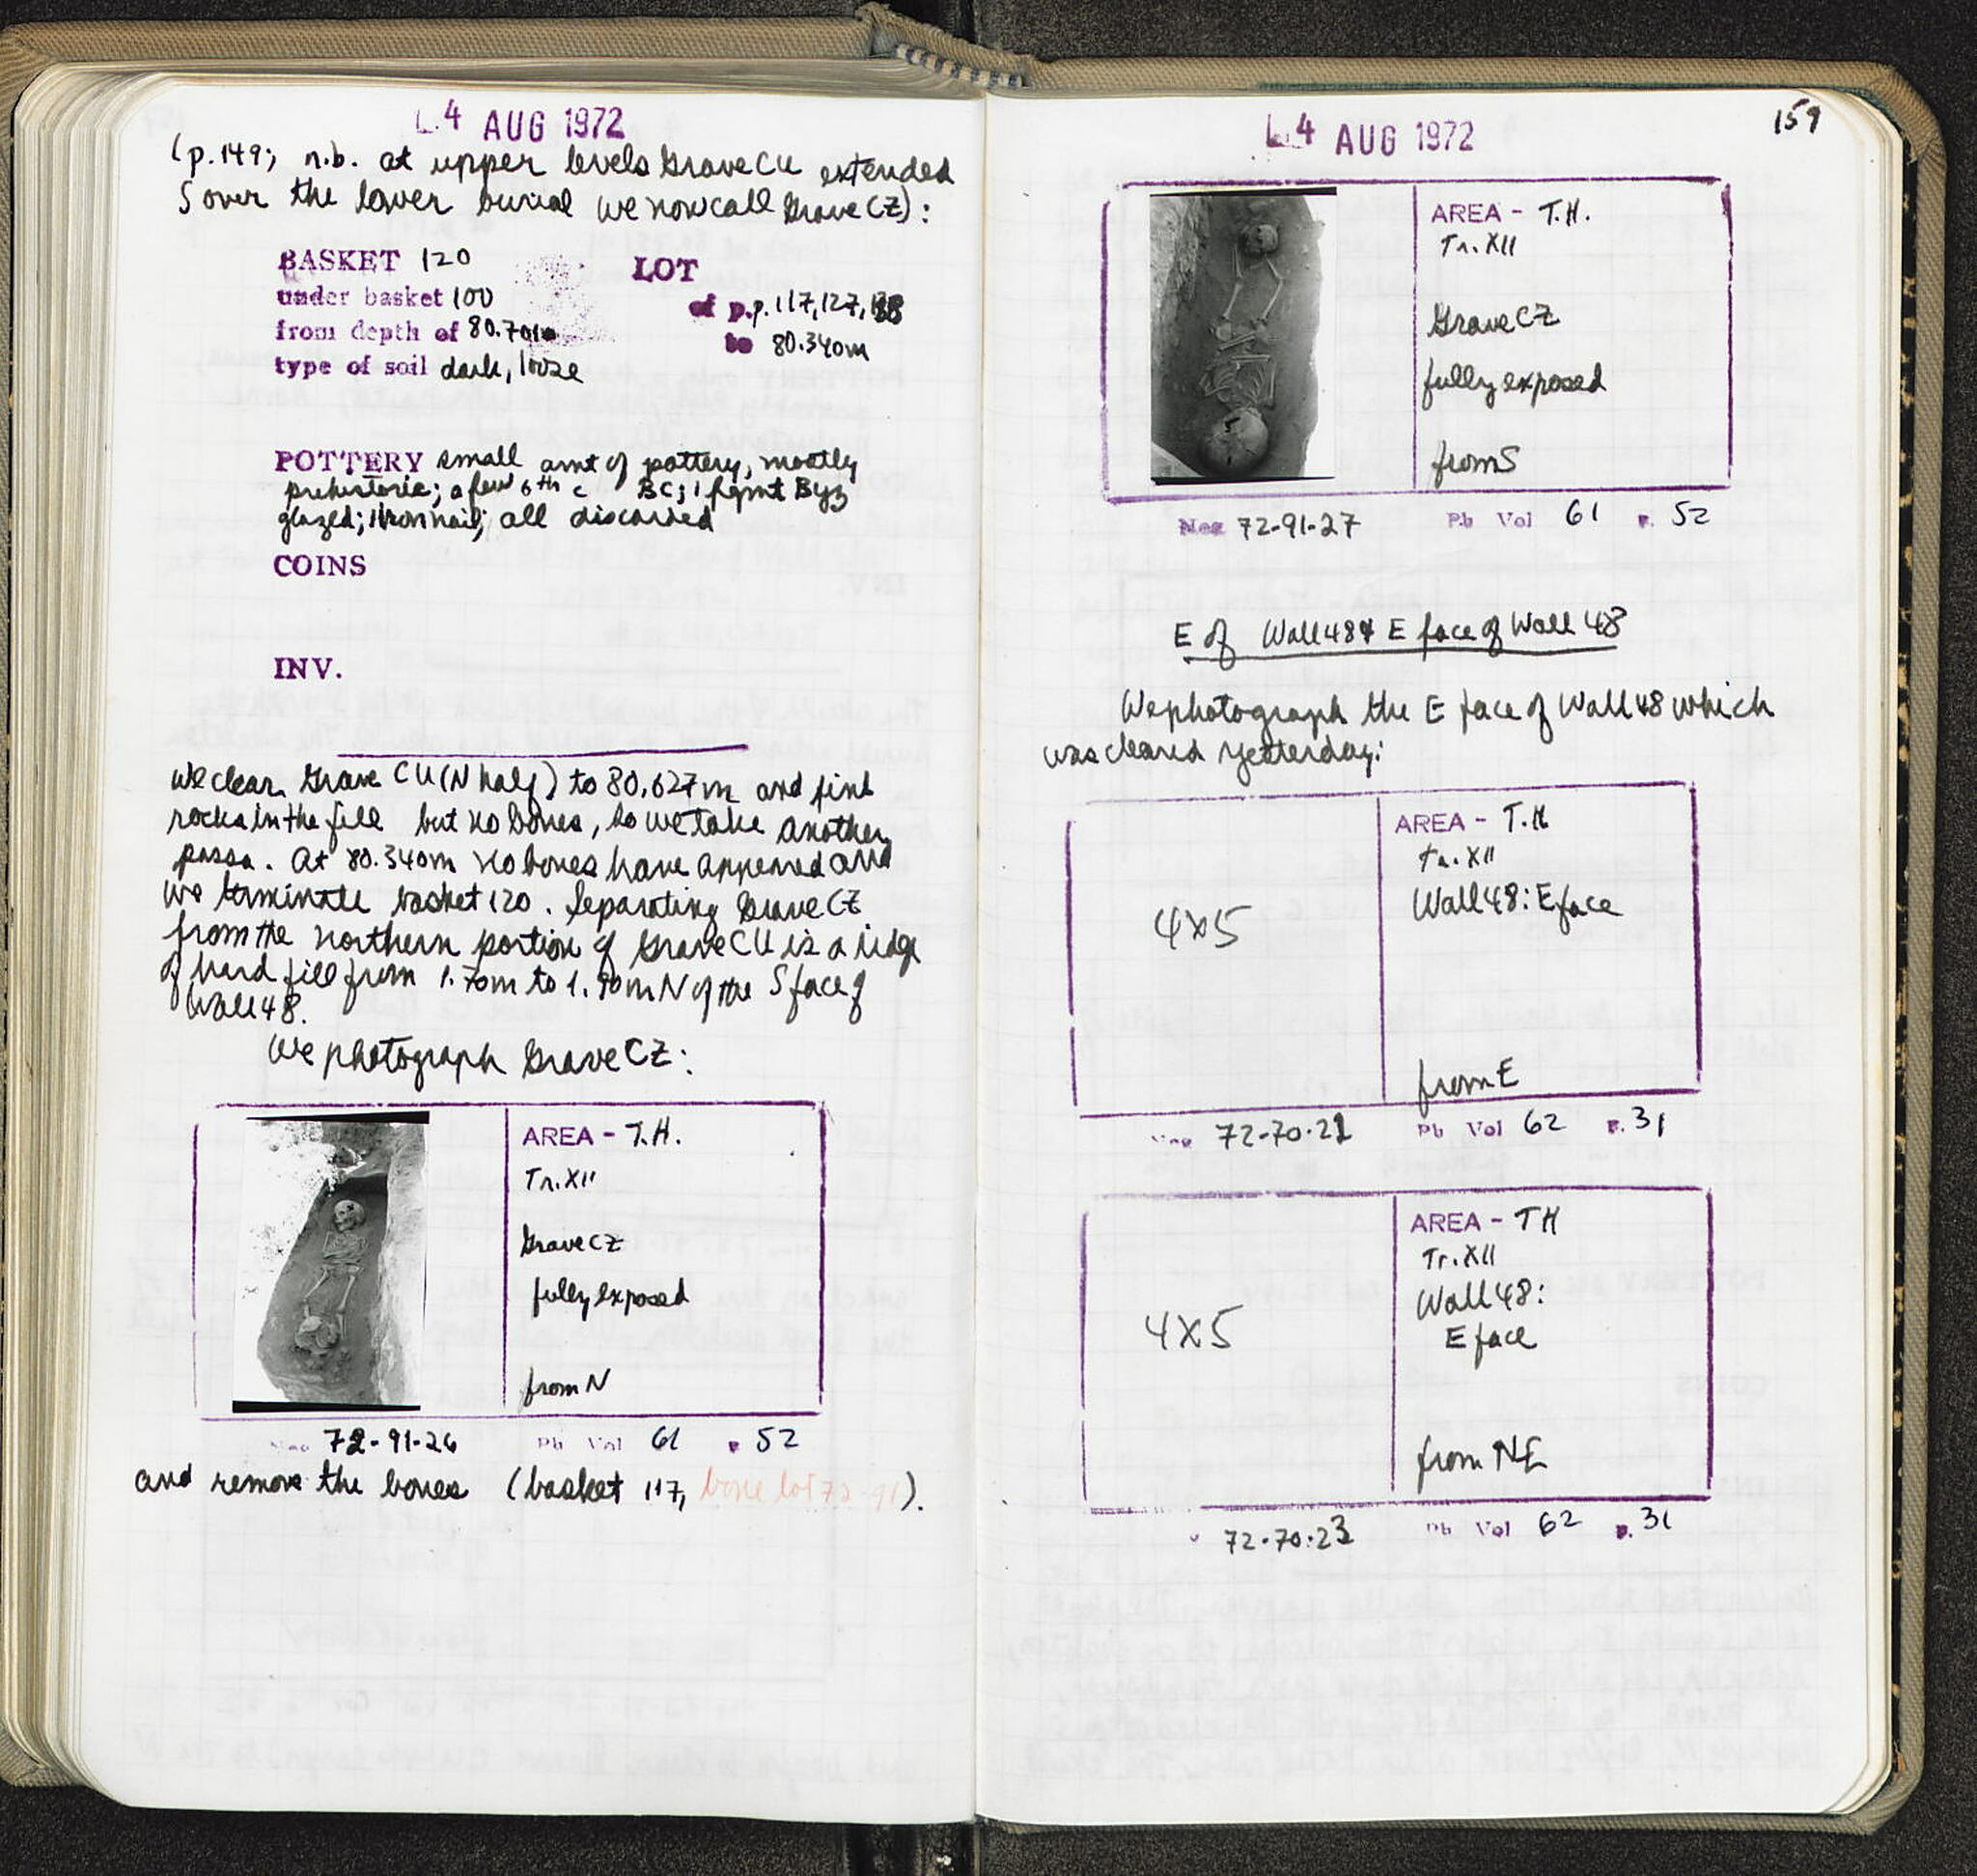 4 AUG 1972
(p.149; n.b. at upper levels Grave CU extended
S over the lower burial we now call Grave CZ):
BASKET 120
LOT
under basket 100
of p.p. 117, 127,
from depth of 80.701m
to 80.340m
type of soil dark, loose
POTTERY small amt of pottery, mostly
prehistoric; a few 6th c BC; 1 fgmt Byz
glazed; 1 iron nail; all discarded
COINS
INV.
We clear Grave CU (N half) to 80.627m and find
rocks in the fill but no bones, so we take another
passa. At 80.340m no bones have appeared and
we terminate basket 120. Separating Grave CZ
from the northern portion of Grave CU is a ridge
of hard fill from 1.70m to 1.90m N of the S face of
Wall 48.
We photograph Grave CZ:
AREA - T.H.
Tr. XII
Grave CZ
fully exposed
from N
Neg 72-91-26 Pb Vol 61 p. 52
and remove the bones (basket 117, bone lot 72-91).
4 AUG 1972
159
AREA - T.H.
Tr. XII
Grave CZ
fully exposed
from S
Neg 72-91-27 Pb Vol 61 p. 52
E of Wall 48 & E face of Wall 48
We photograph the E face of Wall 48 which
was cleared yesterday:
AREA - T.H
Tr. XII
Wall 48: E face
4x5
from E
Neg 72-70-21 Pb Vol 62 p. 31
AREA - TH
Tr. XII
Wall 48:
E face
4x5
from NE
72-70-23 Pb Vol 62 p. 31